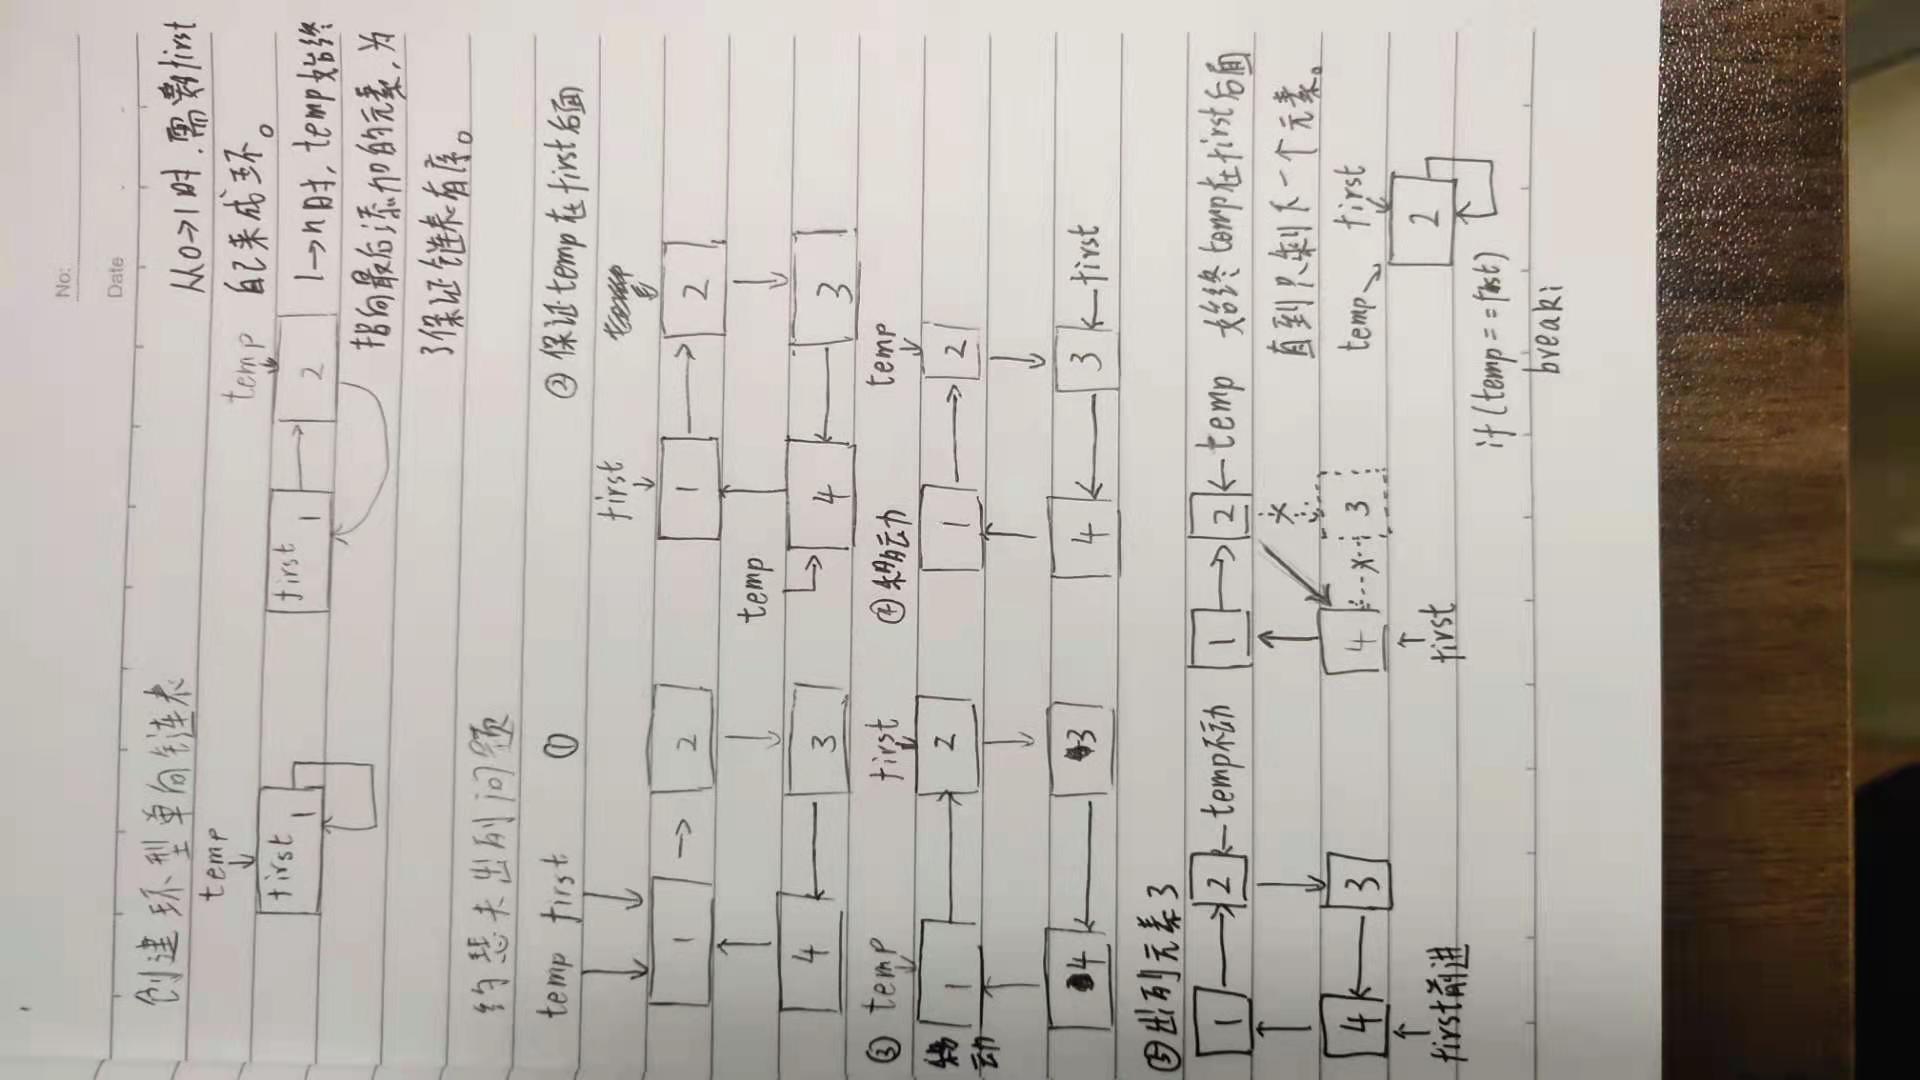 No:
Date
创建环型单向链表
从0→1时,需要first
自己来成环。
1→n时, temp始终
指向最后添加的元素,为
了保证链表有序。
temp
first 1
temp
first 1
2
约瑟夫出列问题
temp first ①
1 → 2
4 ← 3
② 保证temp在first后面
first
1 → 2
temp
4 ← 3
③ temp first
移动
1 → 2
4 ← 3
④ 移动 temp
1 → 2
4 ← 3 ← first
⑤ 出列元素3
1 → 2 ← temp不动
4 ← 3
first前进
1 → 2 ← temp
4 3
first
始终temp在first后面
直到只剩下一个元素。
temp first
2
if (temp == first)
break;